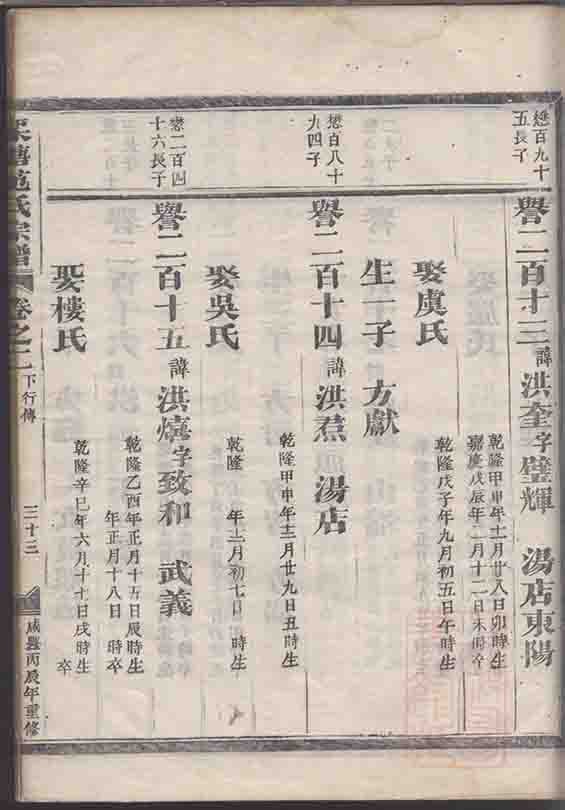 懋百九十
五長子
譽二百十三諱洪奎字璧輝　湯店東陽
乾隆甲申年十一月廿八日卯時生
嘉慶戊辰年二月十二日未時卒
娶虞氏
乾隆戊子年九月初五日午時生
生一子　方獻
懋百八十
九四子
譽二百十四諱洪㷛湯店
乾隆甲申年十二月廿九日丑時生
娶吳氏
乾隆　年十一月初七日　時生
懋二百四
十六長子
譽二百十五諱洪熺字致和　武義
乾隆乙酉年正月十五日辰時生
年正月十八日　時卒
娶樓氏
乾隆辛巳年六月十七日戌時生
卒
氏宗譜
卷之二
下行傳
三十三
咸豐丙辰年重修